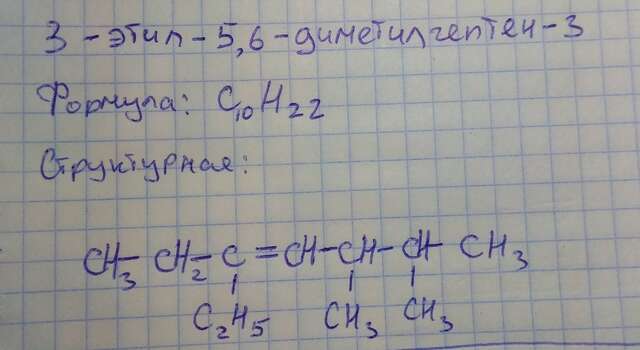 3-этил-5,6-диметилгептен-3
Формула: C₁₀H₂₂
Структурная:
CH₃-CH₂-C=CH-CH-CH-CH₃
C₂H₅ CH₃ CH₃